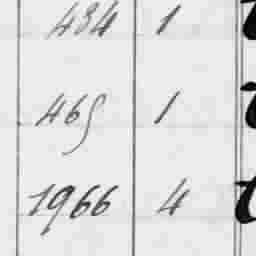 434 1
465 1
1966 4